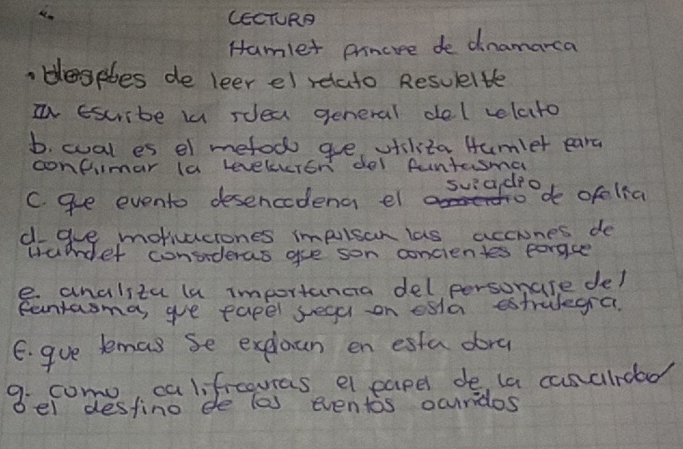 LECTURA
Hamlet principe de dinamarca
. despues de leer el relato Resuelve
a escribe la idea general del relato
b. cual es el metodo que utiliza Hamlet para
confirmar la revelación del fantasma
suicidio
c. que evento desencadena el de ofelia
d- que motivaciones impulsan las acciones de
Hamlet consideras que son concientes porque
e. analiza la importancia del personaje del
fantasma, que papel juega en esta estrategia.
f. que temas se exploran en esta obra
g. como calificarias el papel de la casualidad
o el destino de los eventos ocurridos